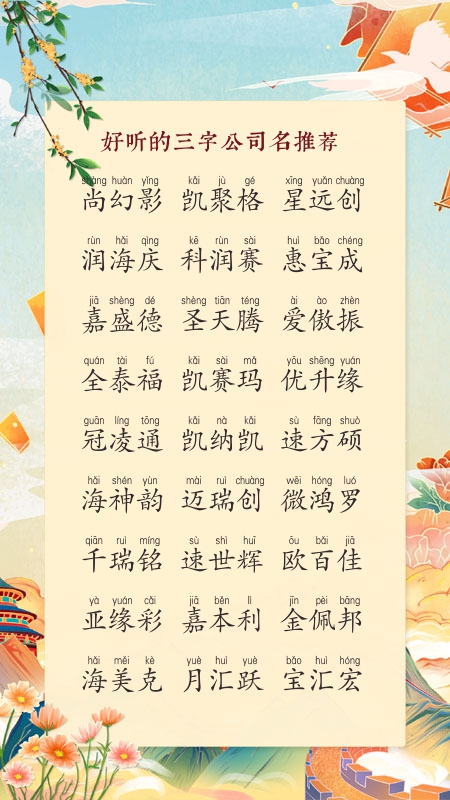 好听的三字公司名推荐
shàng huàn yǐng kǎi jù gé xīng yuǎn chuàng
尚幻影 凯聚格 星远创
rùn hǎi qìng kē rùn sài huì bǎo chéng
润海庆 科润赛 惠宝成
jiā shèng dé shèng tiān téng ài ào zhèn
嘉盛德 圣天腾 爱傲振
quán tài fú kǎi sài mǎ yōu shēng yuán
全泰福 凯赛玛 优升缘
guān líng tōng kǎi nà kǎi sù fāng shuò
冠凌通 凯纳凯 速方硕
hǎi shén yùn mài ruì chuàng wēi hóng luó
海神韵 迈瑞创 微鸿罗
qiān ruì míng sù shì huī ōu bǎi jiā
千瑞铭 速世辉 欧百佳
yà yuán cǎi jiā běn lì jīn pèi bāng
亚缘彩 嘉本利 金佩邦
hǎi měi kè yuè huì yuè bǎo huì hóng
海美克 月汇跃 宝汇宏